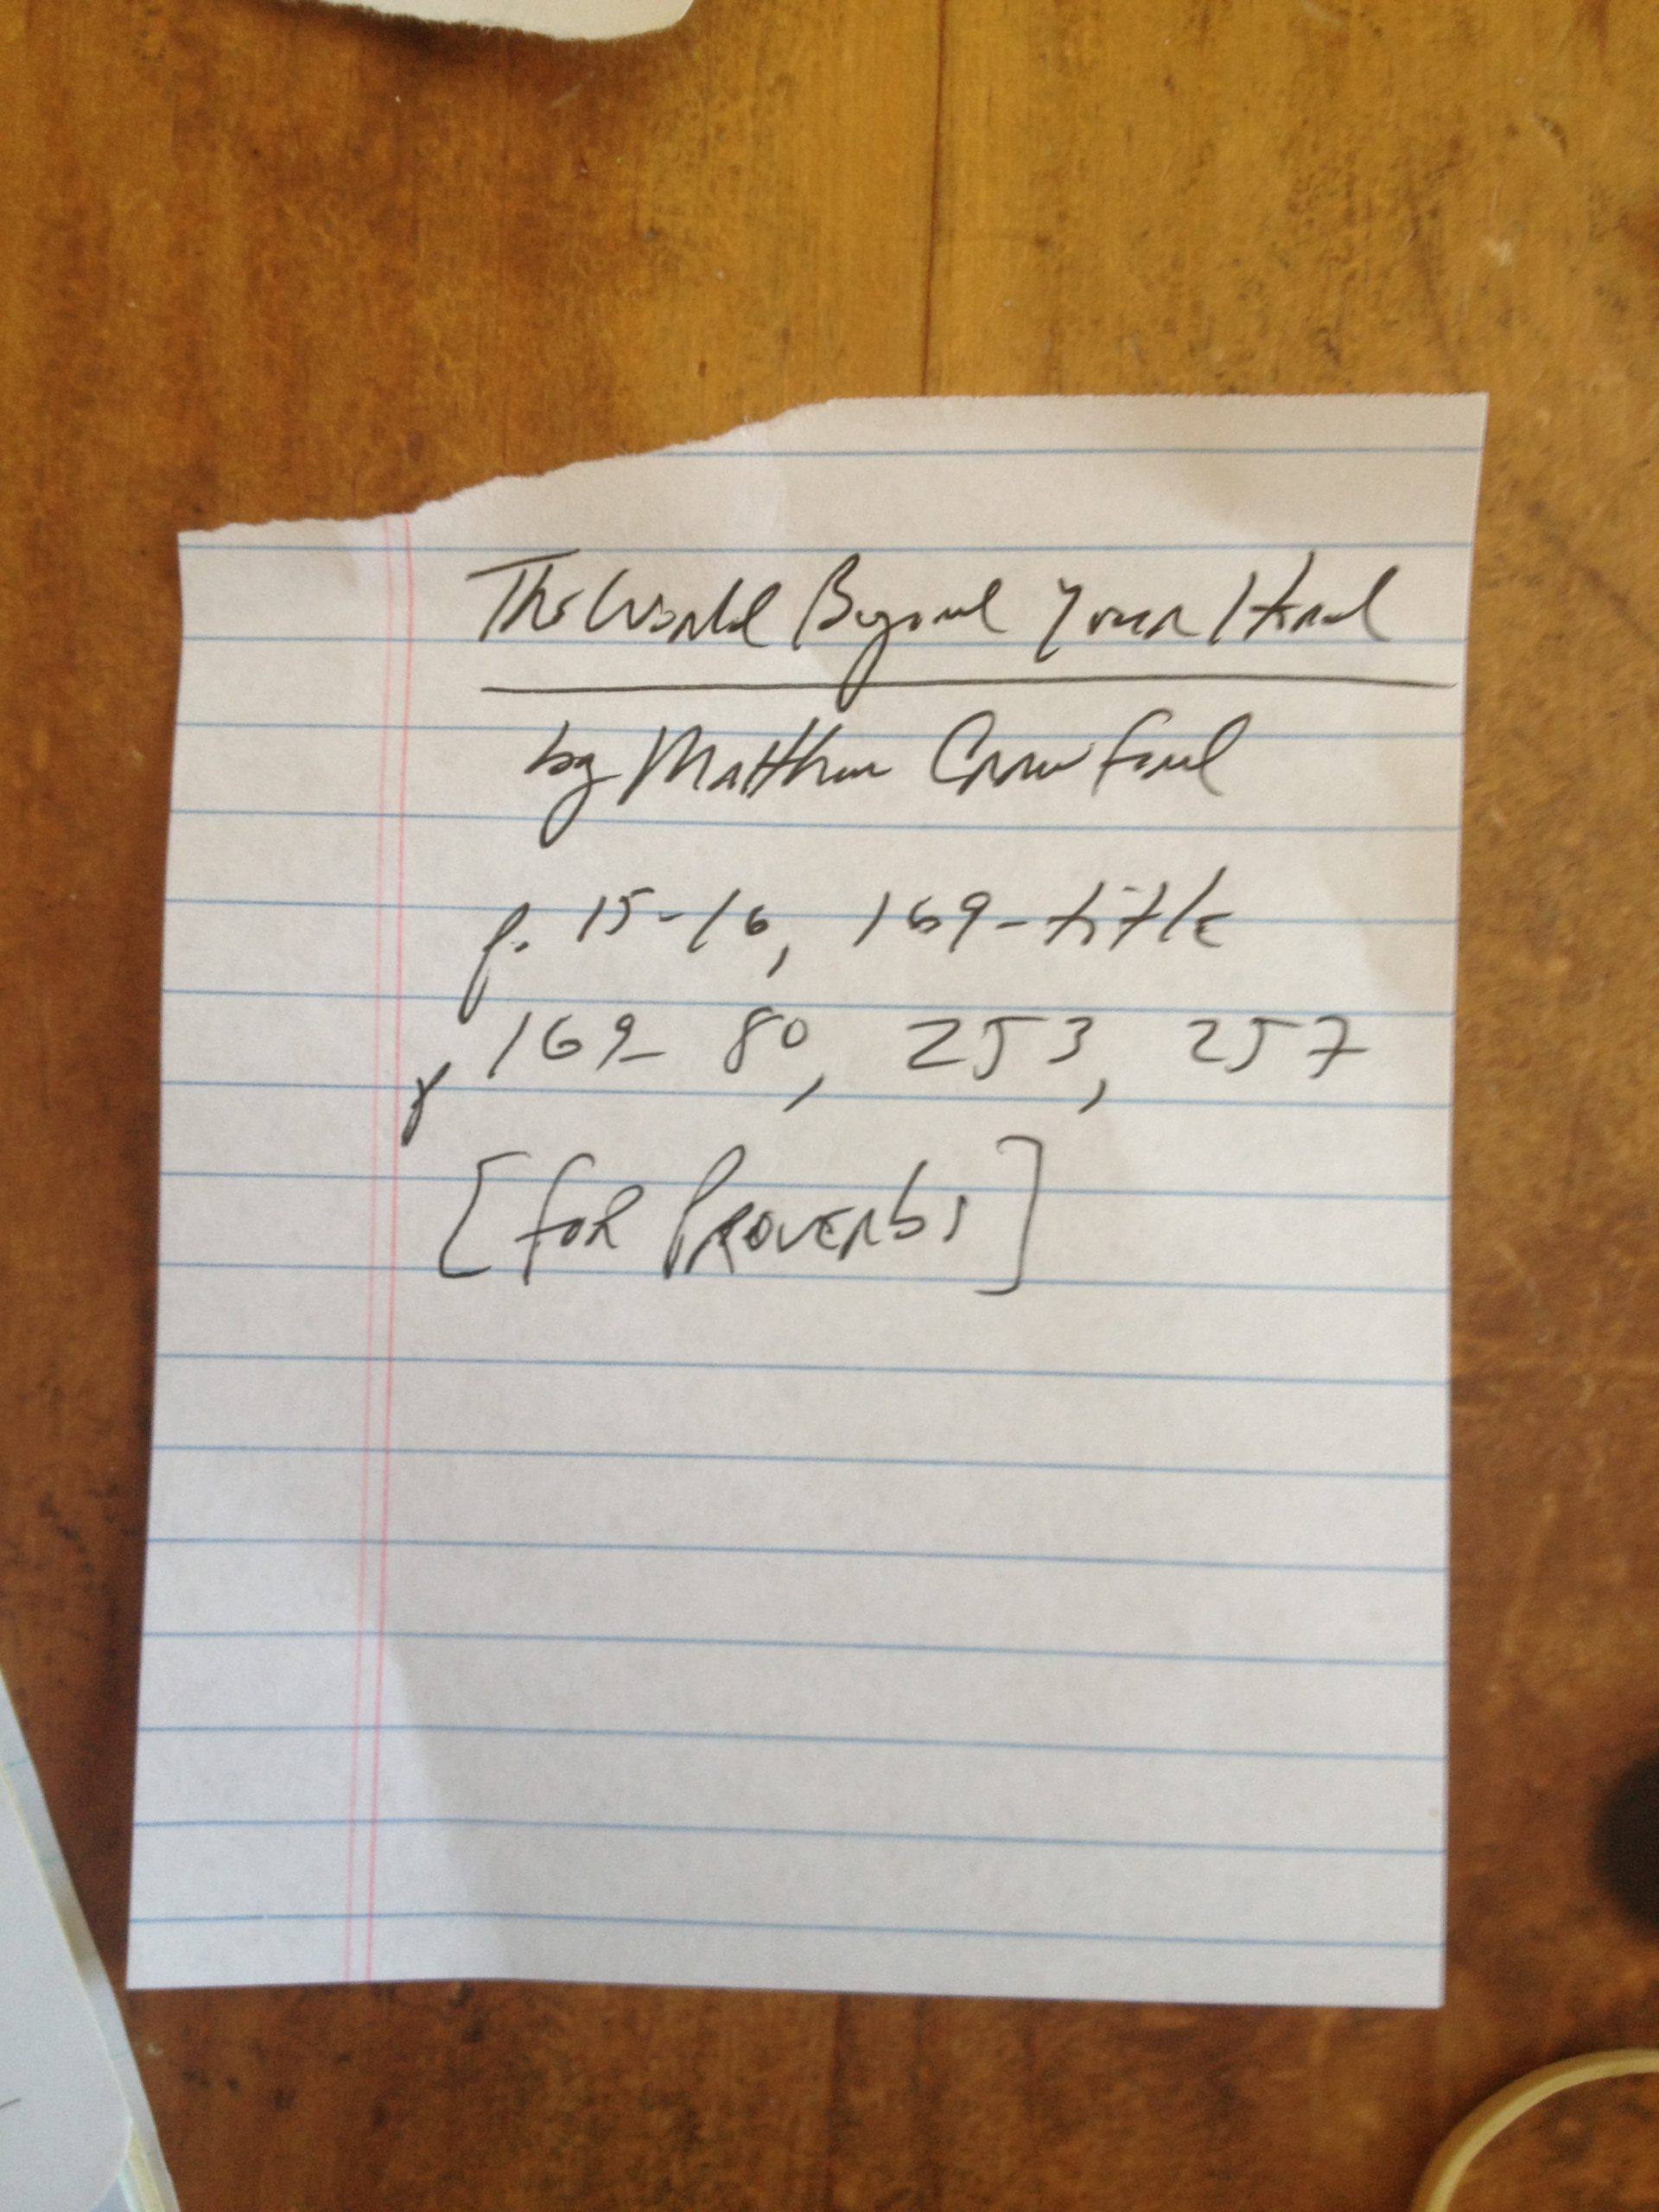 The World Beyond Your Head
by Matthew Crawford
p. 15-16, 169-title
169-80, 253, 257
[for Proverbs]